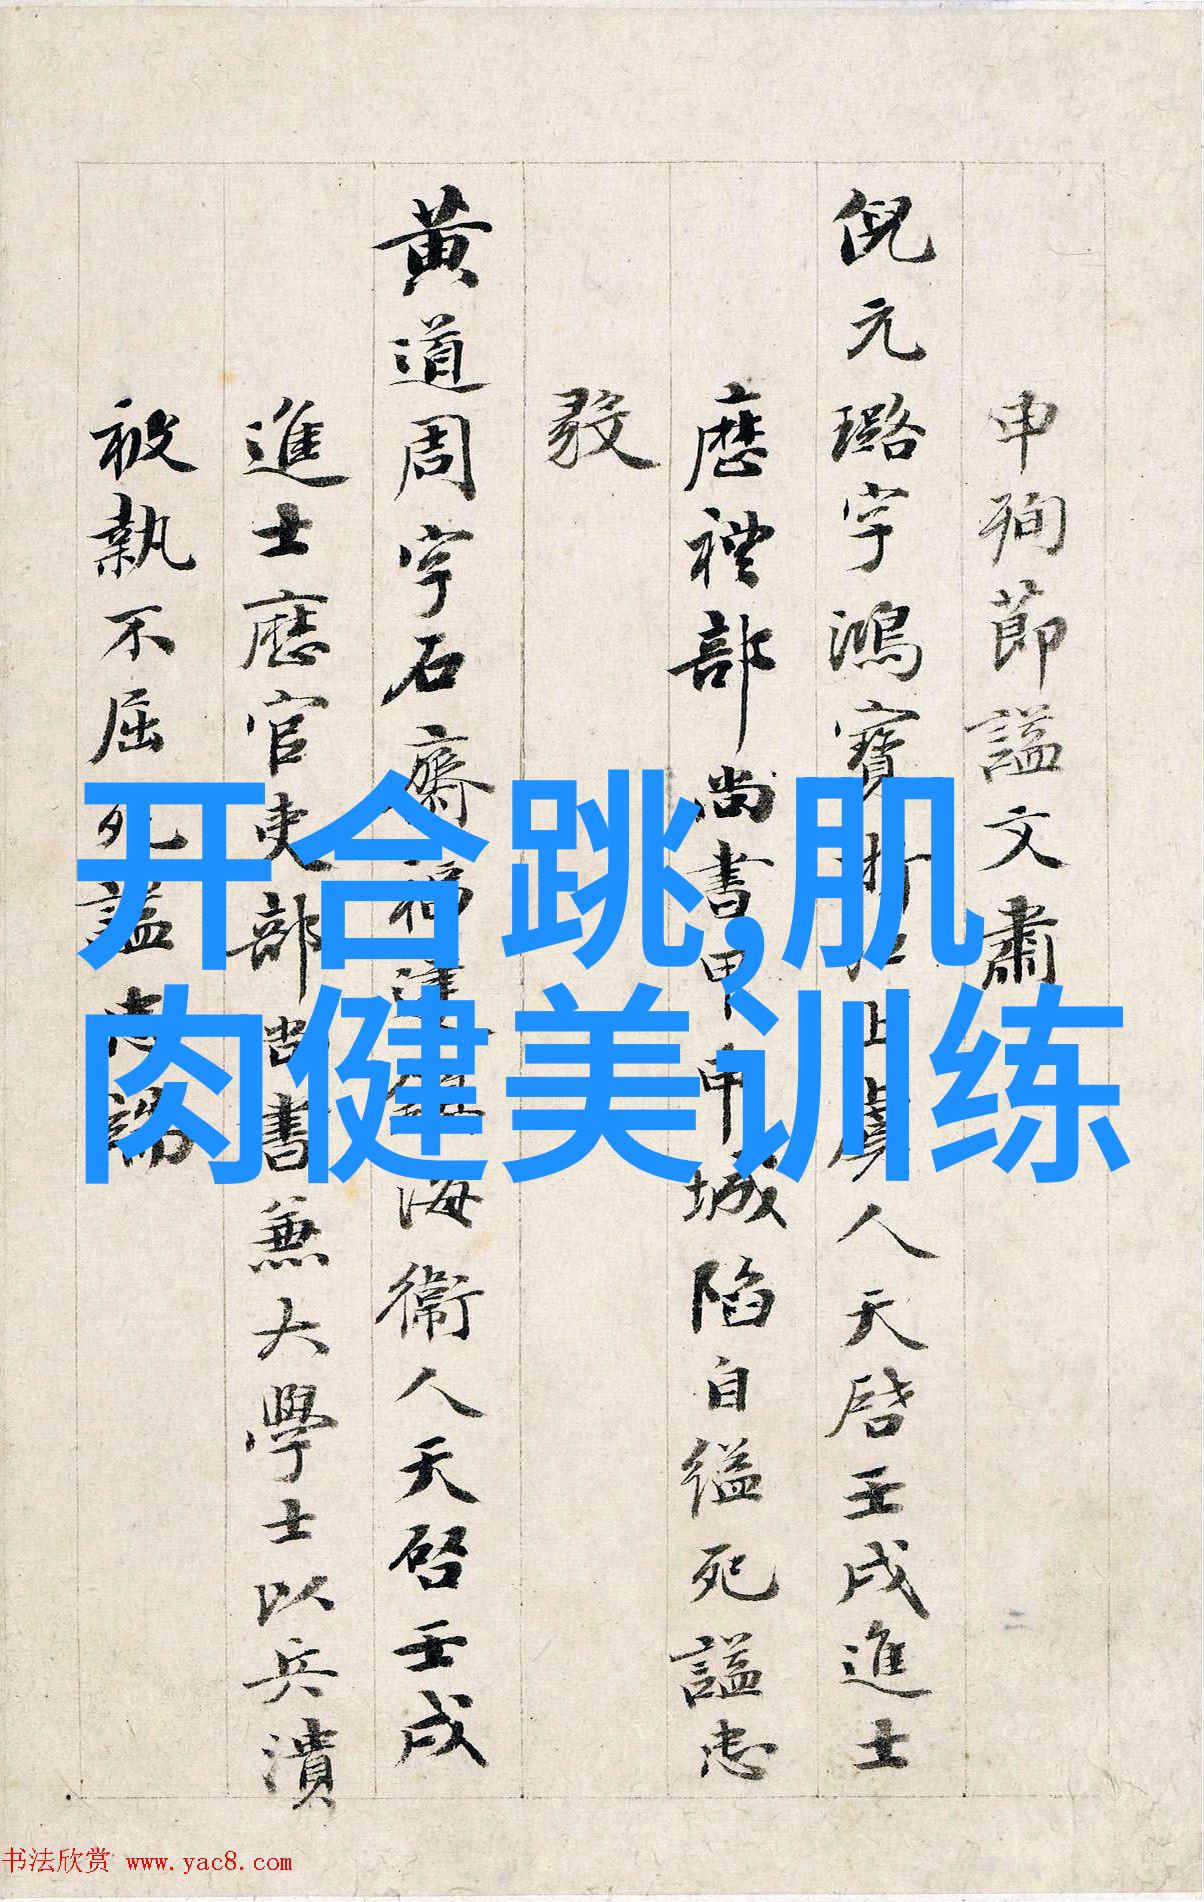 申殉節謚文肅
倪元璐字鴻寶浙江上虞人天啓壬戌進士
歷禮部尚書甲申城陷自縊死謚忠
毅
黄道周字石齋福建鎮海衞人天啓壬戌
進士歷官吏部尚書兼大學士以兵潰
被執不屈死謚忠端
开合跳,肌
肉健美训练
书法欣赏 www.yac8.com